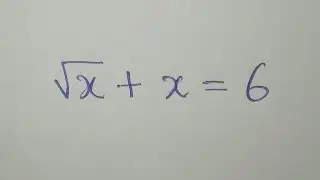 √x + x = 6